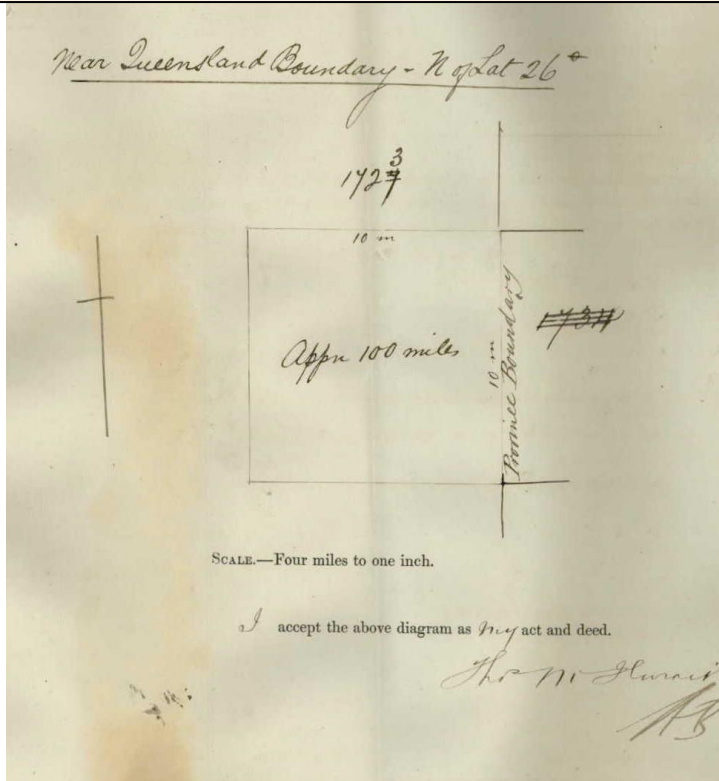 Near Queensland Boundary - N of Lat 26°
1723
10 m
Appn 100 miles
10 m
Province Boundary
1734
SCALE.—Four miles to one inch.
I accept the above diagram as my act and deed.
Thos M